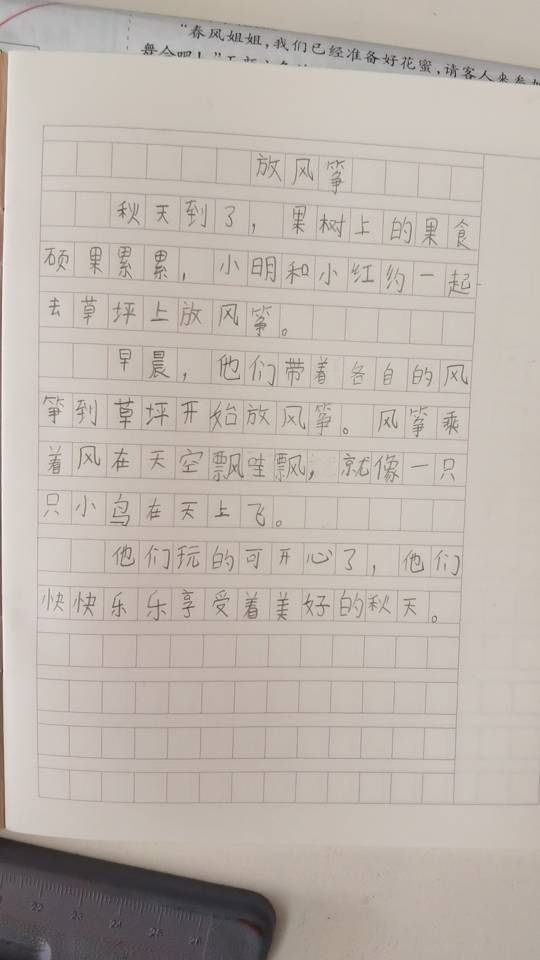 “春风姐姐，我们已经准备好花蜜，请客人来参加
放风筝
秋天到了，果树上的果食
硕果累累，小明和小红约一起
去草坪上放风筝。
早晨，他们带着各自的风
筝到草坪开始放风筝。风筝乘
着风在天空飘哇飘，就像一只
只小鸟在天上飞。
他们玩的可开心了，他们
快快乐乐享受着美好的秋天。
22 23 24 25 26